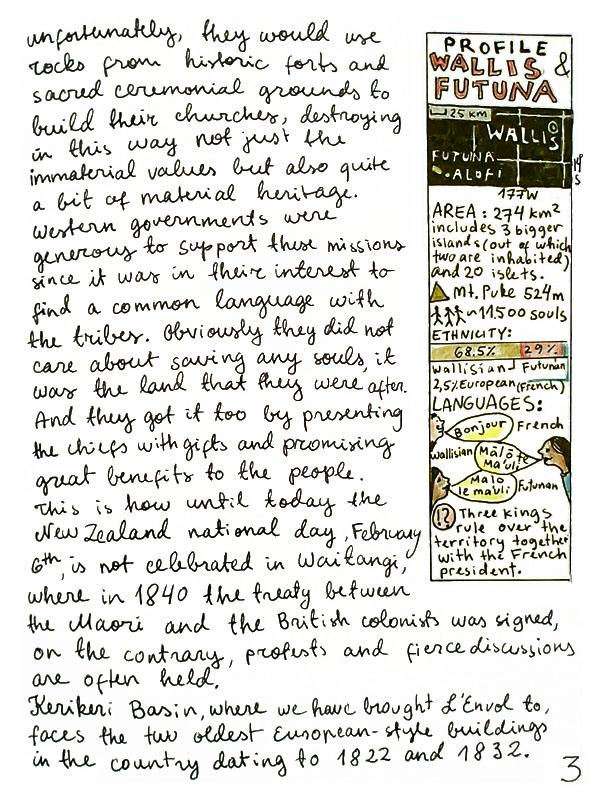 unfortunately, they would use
rocks from historic forts and
sacred ceremonial grounds to
build their churches, destroying
in this way not just the
immaterial values but also quite
a bit of material heritage.
Western governments were
generous to support these missions
since it was in their interest to
find a common language with
the tribes. Obviously they did not
care about saving any souls, it
was the land that they were after.
And they got it too by presenting
the chiefs with gifts and promising
great benefits to the people.
This is how until today the
New Zealand national day, February
6th, is not celebrated in Waitangi,
where in 1840 the treaty between
the Maori and the British colonists was signed,
on the contrary, protests and fierce discussions
are often held.
Kerikeri Basin, where we have brought L'Envol to,
faces the two oldest European-style buildings
in the country dating to 1822 and 1832.
PROFILE
WALLIS &
FUTUNA
25 KM
WALLIS
FUTUNA
ALOFI
14
S
177W
AREA: 274 km²
includes 3 bigger
islands (out of which
two are inhabited)
and 20 islets.
Mt. Puke 524m
~11,500 souls
ETHNICITY:
68.5% 29%
Wallisian Futunan
2,5% European (French)
LANGUAGES:
Bonjour French
Wallisian Mālō te
Ma'uli
Malo
le ma'uli Futunan
!? Three kings
rule over the
territory together
with the French
president.
3